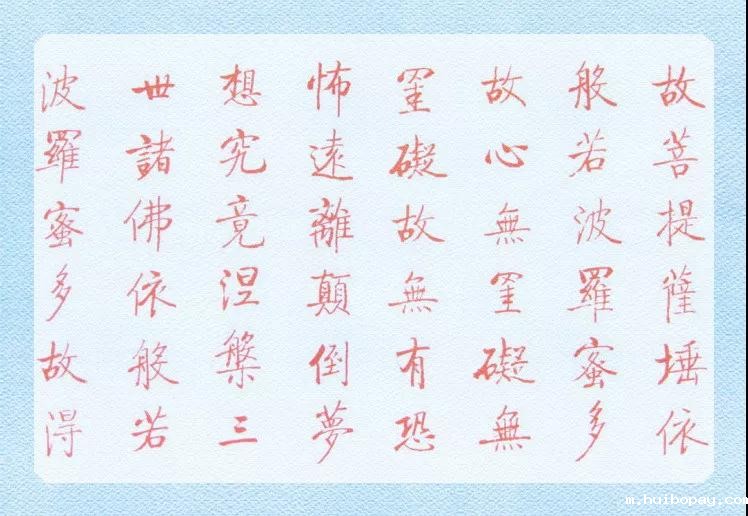 故菩提薩埵依
般若波羅蜜多
故心無罣礙無
罣礙故無有恐
怖遠離顛倒夢
想究竟涅槃三
世諸佛依般若
波羅蜜多故得
m.huibopay.com